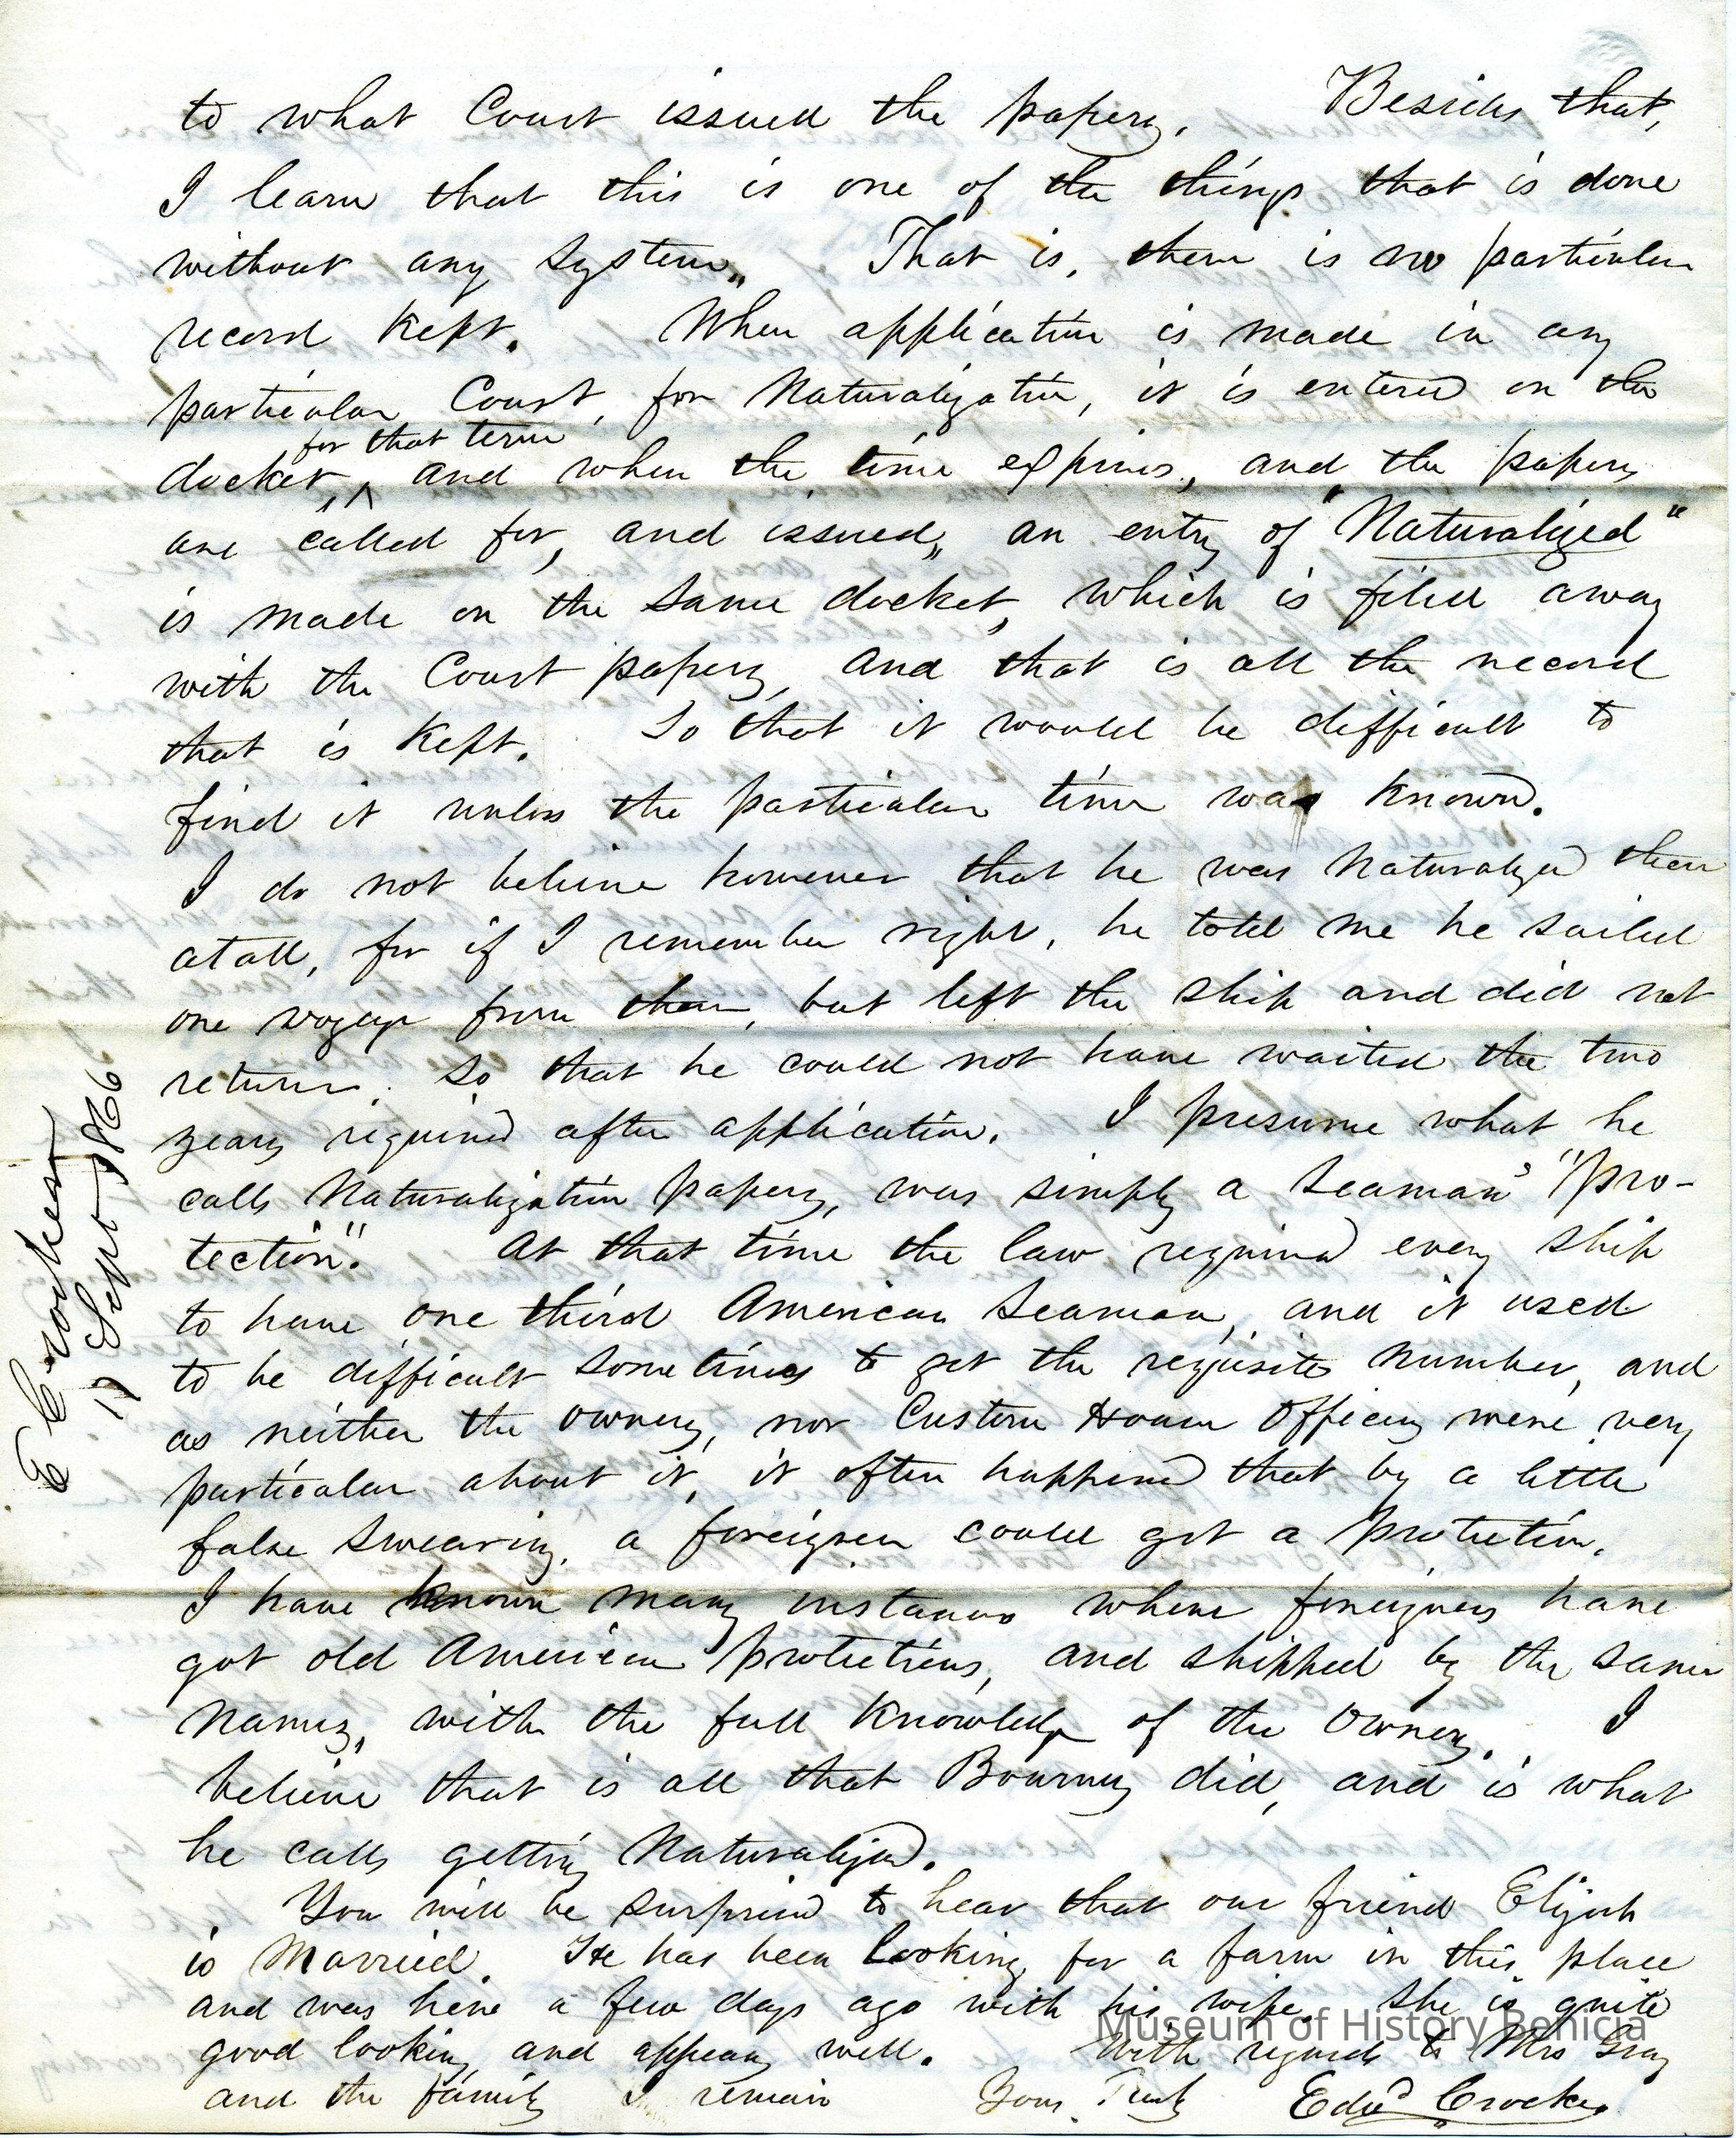 to what Court issued the papers. Besides that,
I learn that this is one of the things that is done
without any system. That is, there is no particular
record kept. When application is made in any
particular Court, for Naturalization, it is entered on the
for that term
docket, ^ and when the time expires, and the papers
are called for, and issued, an entry of "Naturalized"
is made on the same docket, which is filed away
with the Court papers, and that is all the record
that is kept. So that it would be difficult to
find it unless the particular time was known.
I do not believe however that he was Naturalized then
atall, for if I remember right, he told me he sailed
one voyage from there, but left the ship and did not
return. So that he could not have waited the two
years required after application. I presume what he
calls Naturalization papers, was simply a Seaman's "pro-
tection". At that time the law required every ship
to have one third American Seaman, and it used
to be difficult sometimes to get the requisite number, and
as neither the owners, nor Custom House Officers were very
particular about it, it often happened that by a little
false swearing, a foreigner could get a protection.
I have known many instances where foreigners have
got old American protections, and shipped by the same
names, with the full knowledge of the owners. I
believe that is all that Bourney did, and is what
he calls getting Naturalized.
You will be surprised to hear that our friend Elijah
is Married. He has been looking for a farm in this place
and was here a few days ago with his wife. She is quite
good looking, and appears well. With regards to Mrs Gray
and the family I remain Yours Truly Edwd Crocker
E Crocker
17 Sept 1866
Museum of History Benicia